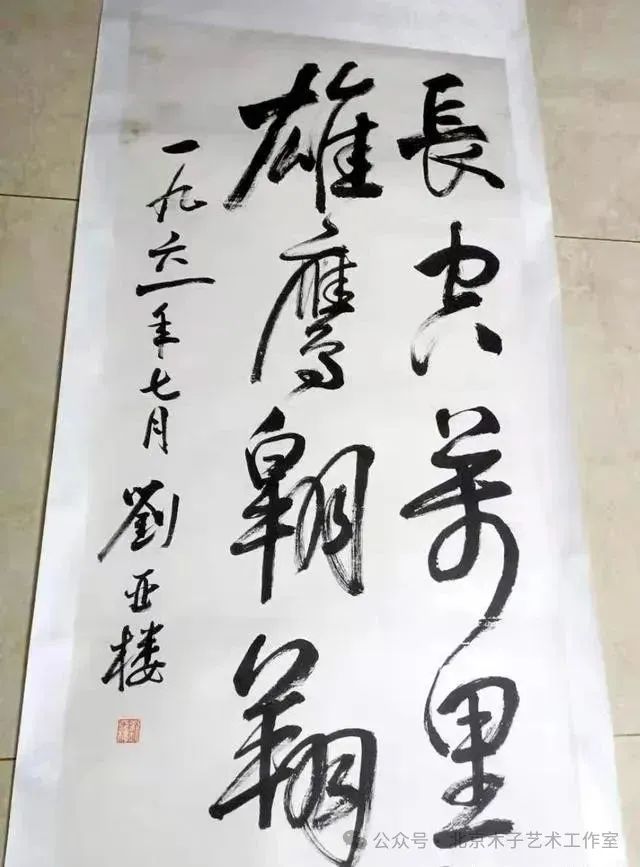 長空萬里
雄鷹翱翔
一九六一年七月 劉亚楼
公众号·北京木子艺术工作室